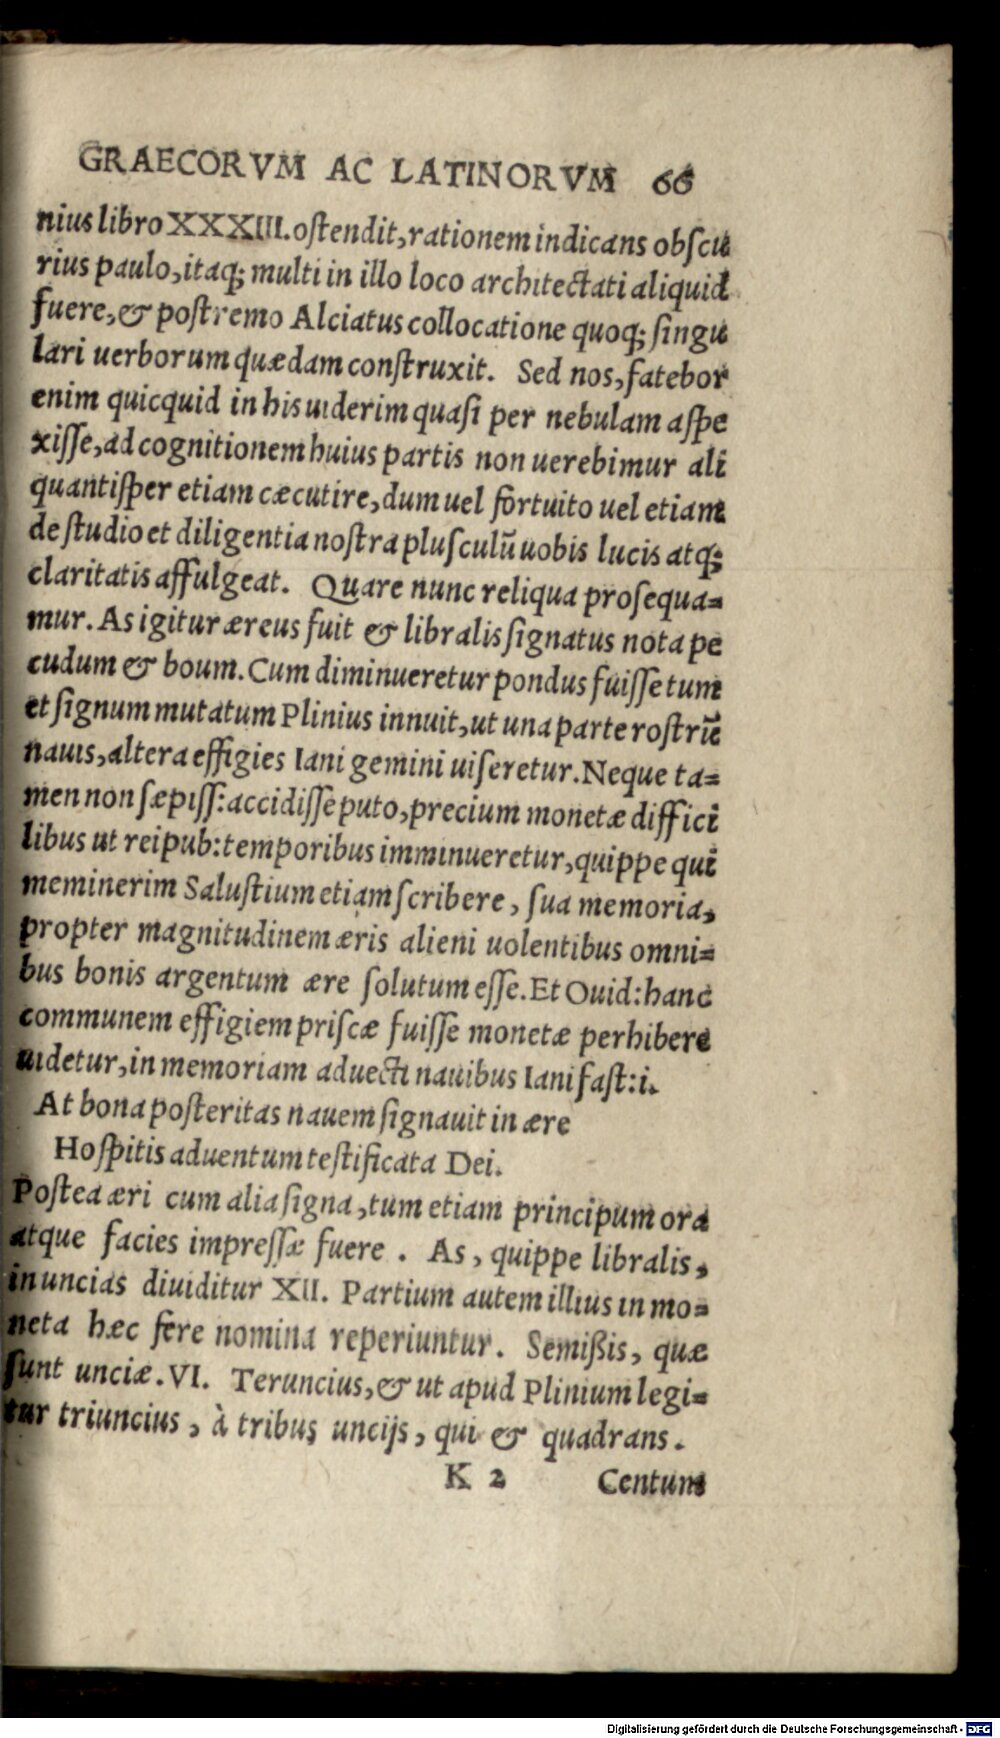 GRAECORVM AC LATINORVM 66
nius libro XXXIII. oſtendit, rationem indicans obſcu
rius paulo, itaq; multi in illo loco architectati aliquid
fuere, & poſtremo Alciatus collocatione quoq; ſingu
lari uerborum quædam conſtruxit. Sed nos, fatebor
enim quicquid in his uiderim quaſi per nebulam aſpe
xiſſe, ad cognitionem huius partis non uerebimur ali
quantiſper etiam cæcutire, dum uel fortuito uel etiam
de ſtudio et diligentia noſtra pluſculũ uobis lucis atq;
claritatis affulgeat. Quare nunc reliqua proſequa=
mur. As igitur æreus fuit & libralis ſignatus nota pe
cudum & boum. Cum diminueretur pondus fuiſſe tum
et ſignum mutatum Plinius innuit, ut una parte roſtrũ
nauis, altera effigies Iani gemini uiſeretur. Neque ta=
men non ſæpiſſ: accidiſſe puto, precium monetæ diffici
libus ut reipub: temporibus imminueretur, quippe qui
meminerim Saluſtium etiam ſcribere, ſua memoria,
propter magnitudinem æris alieni uolentibus omni=
bus bonis argentum ære ſolutum eſſe. Et Ouid: hanc
communem effigiem priſcæ fuiſſe monetæ perhibere
uidetur, in memoriam aduecti nauibus Iani faſt: i.
At bona poſteritas nauem ſignauit in ære
Hoſpitis aduentum teſtificata Dei.
Poſtea æri cum alia ſigna, tum etiam principum ora
atque facies impreſſæ fuere. As, quippe libralis,
in uncias diuiditur XII. Partium autem illius in mo=
neta hæc fere nomina reperiuntur. Semiſsis, quæ
ſunt unciæ. VI. Teruncius, & ut apud Plinium legi=
tur triuncius, à tribus uncijs, qui & quadrans.
K 2 Centum
Digitalisierung gefördert durch die Deutsche Forschungsgemeinschaft - DFG